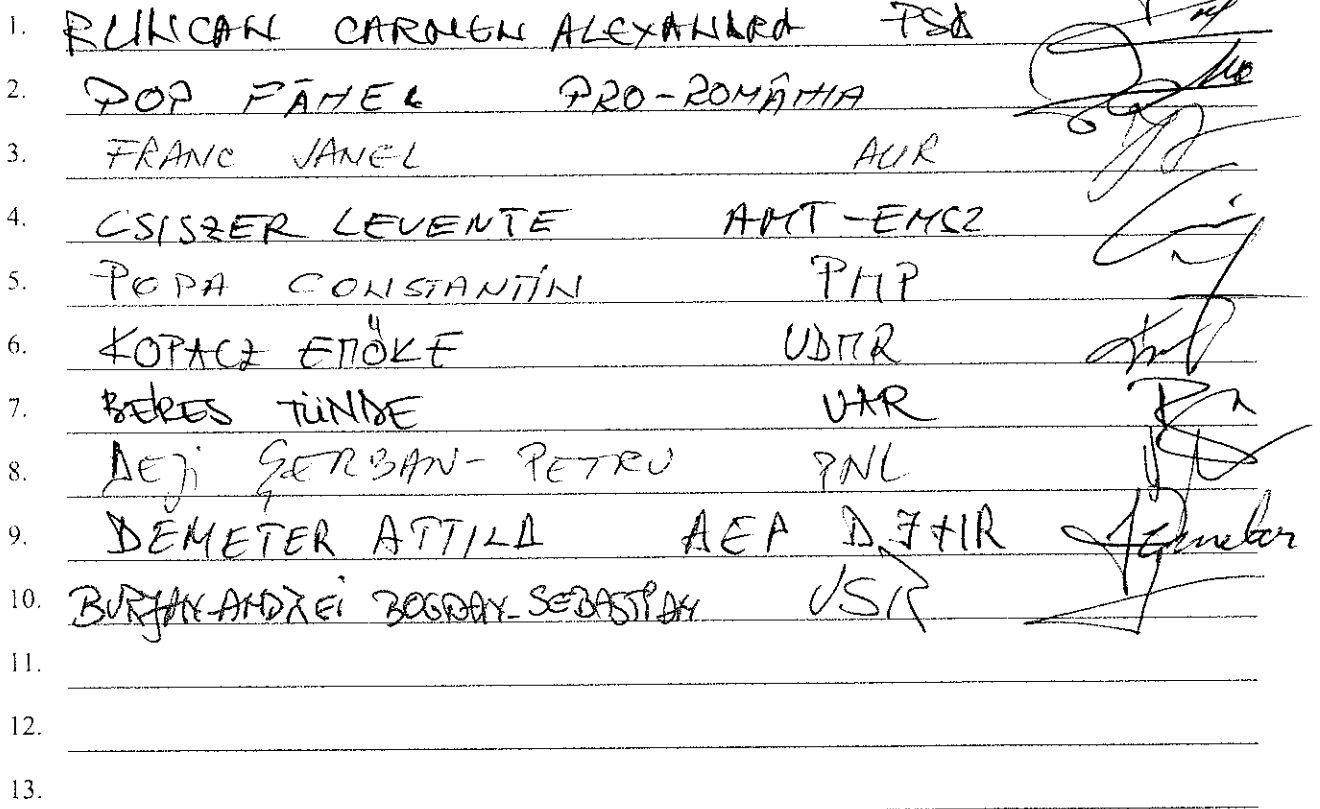 1. RUNCAN CARMEN ALEXANDRA PSD
2. POP FĂNEL PRO-ROMÂNIA
3. FRANC JANEL AUR
4. CSISZER LEVENTE AMT-EMSZ
5. POPA CONSTANTIN PMP
6. KOPACZ EMŐKE UDMR
7. BERES TÜNDE
8. DEJI ȘERBAN-PETRU PNL
9. DEMETER ATTILA AEP
10. BURJAN-ANDREI BOGDAN-SEBASTIAN USR
11.
12.
13.